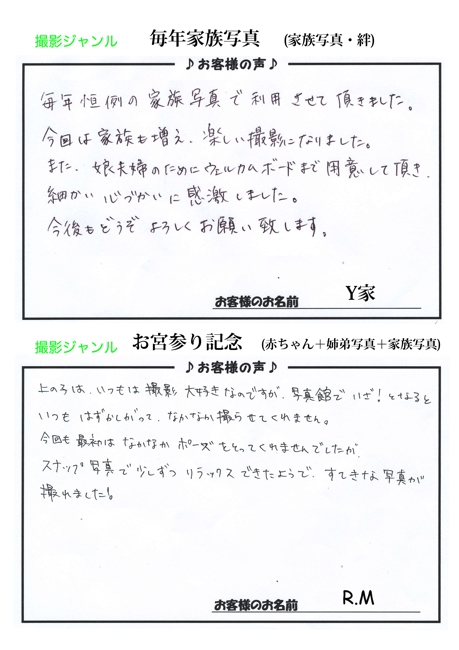 撮影ジャンル 毎年家族写真 (家族写真・絆)
♪お客様の声♪
毎年恒例の家族写真で利用させて頂きました。
今回は家族も増え、楽しい撮影になりました。
また、娘夫婦のためにウェルカムボードまで用意して頂き、
細かい心づかいに感激しました。
今後もどうぞよろしくお願い致します。
お客様のお名前 Y家
撮影ジャンル お宮参り記念 (赤ちゃん＋姉弟写真＋家族写真)
♪お客様の声♪
上の子は、いつもは撮影大好きなのですが、写真館でいざ！となると
いつもはずかしがって、なかなか撮らせてくれません。
今回も最初はなかなかポーズをとってくれませんでしたが、
スナップ写真で少しずつリラックスできたようで、すてきな写真が
撮れました！
お客様のお名前 R.M